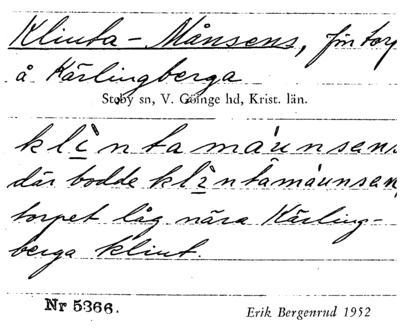 Klinta-Månsens, för torp
å Kärlingberga
Stoby sn, V. Göinge hd, Krist. län.
klìntamáunsens
där bodde klìntamáunsen,
torpet låg nära Kärling-
berga klint.
Nr 5366.
Erik Bergenrud 1952